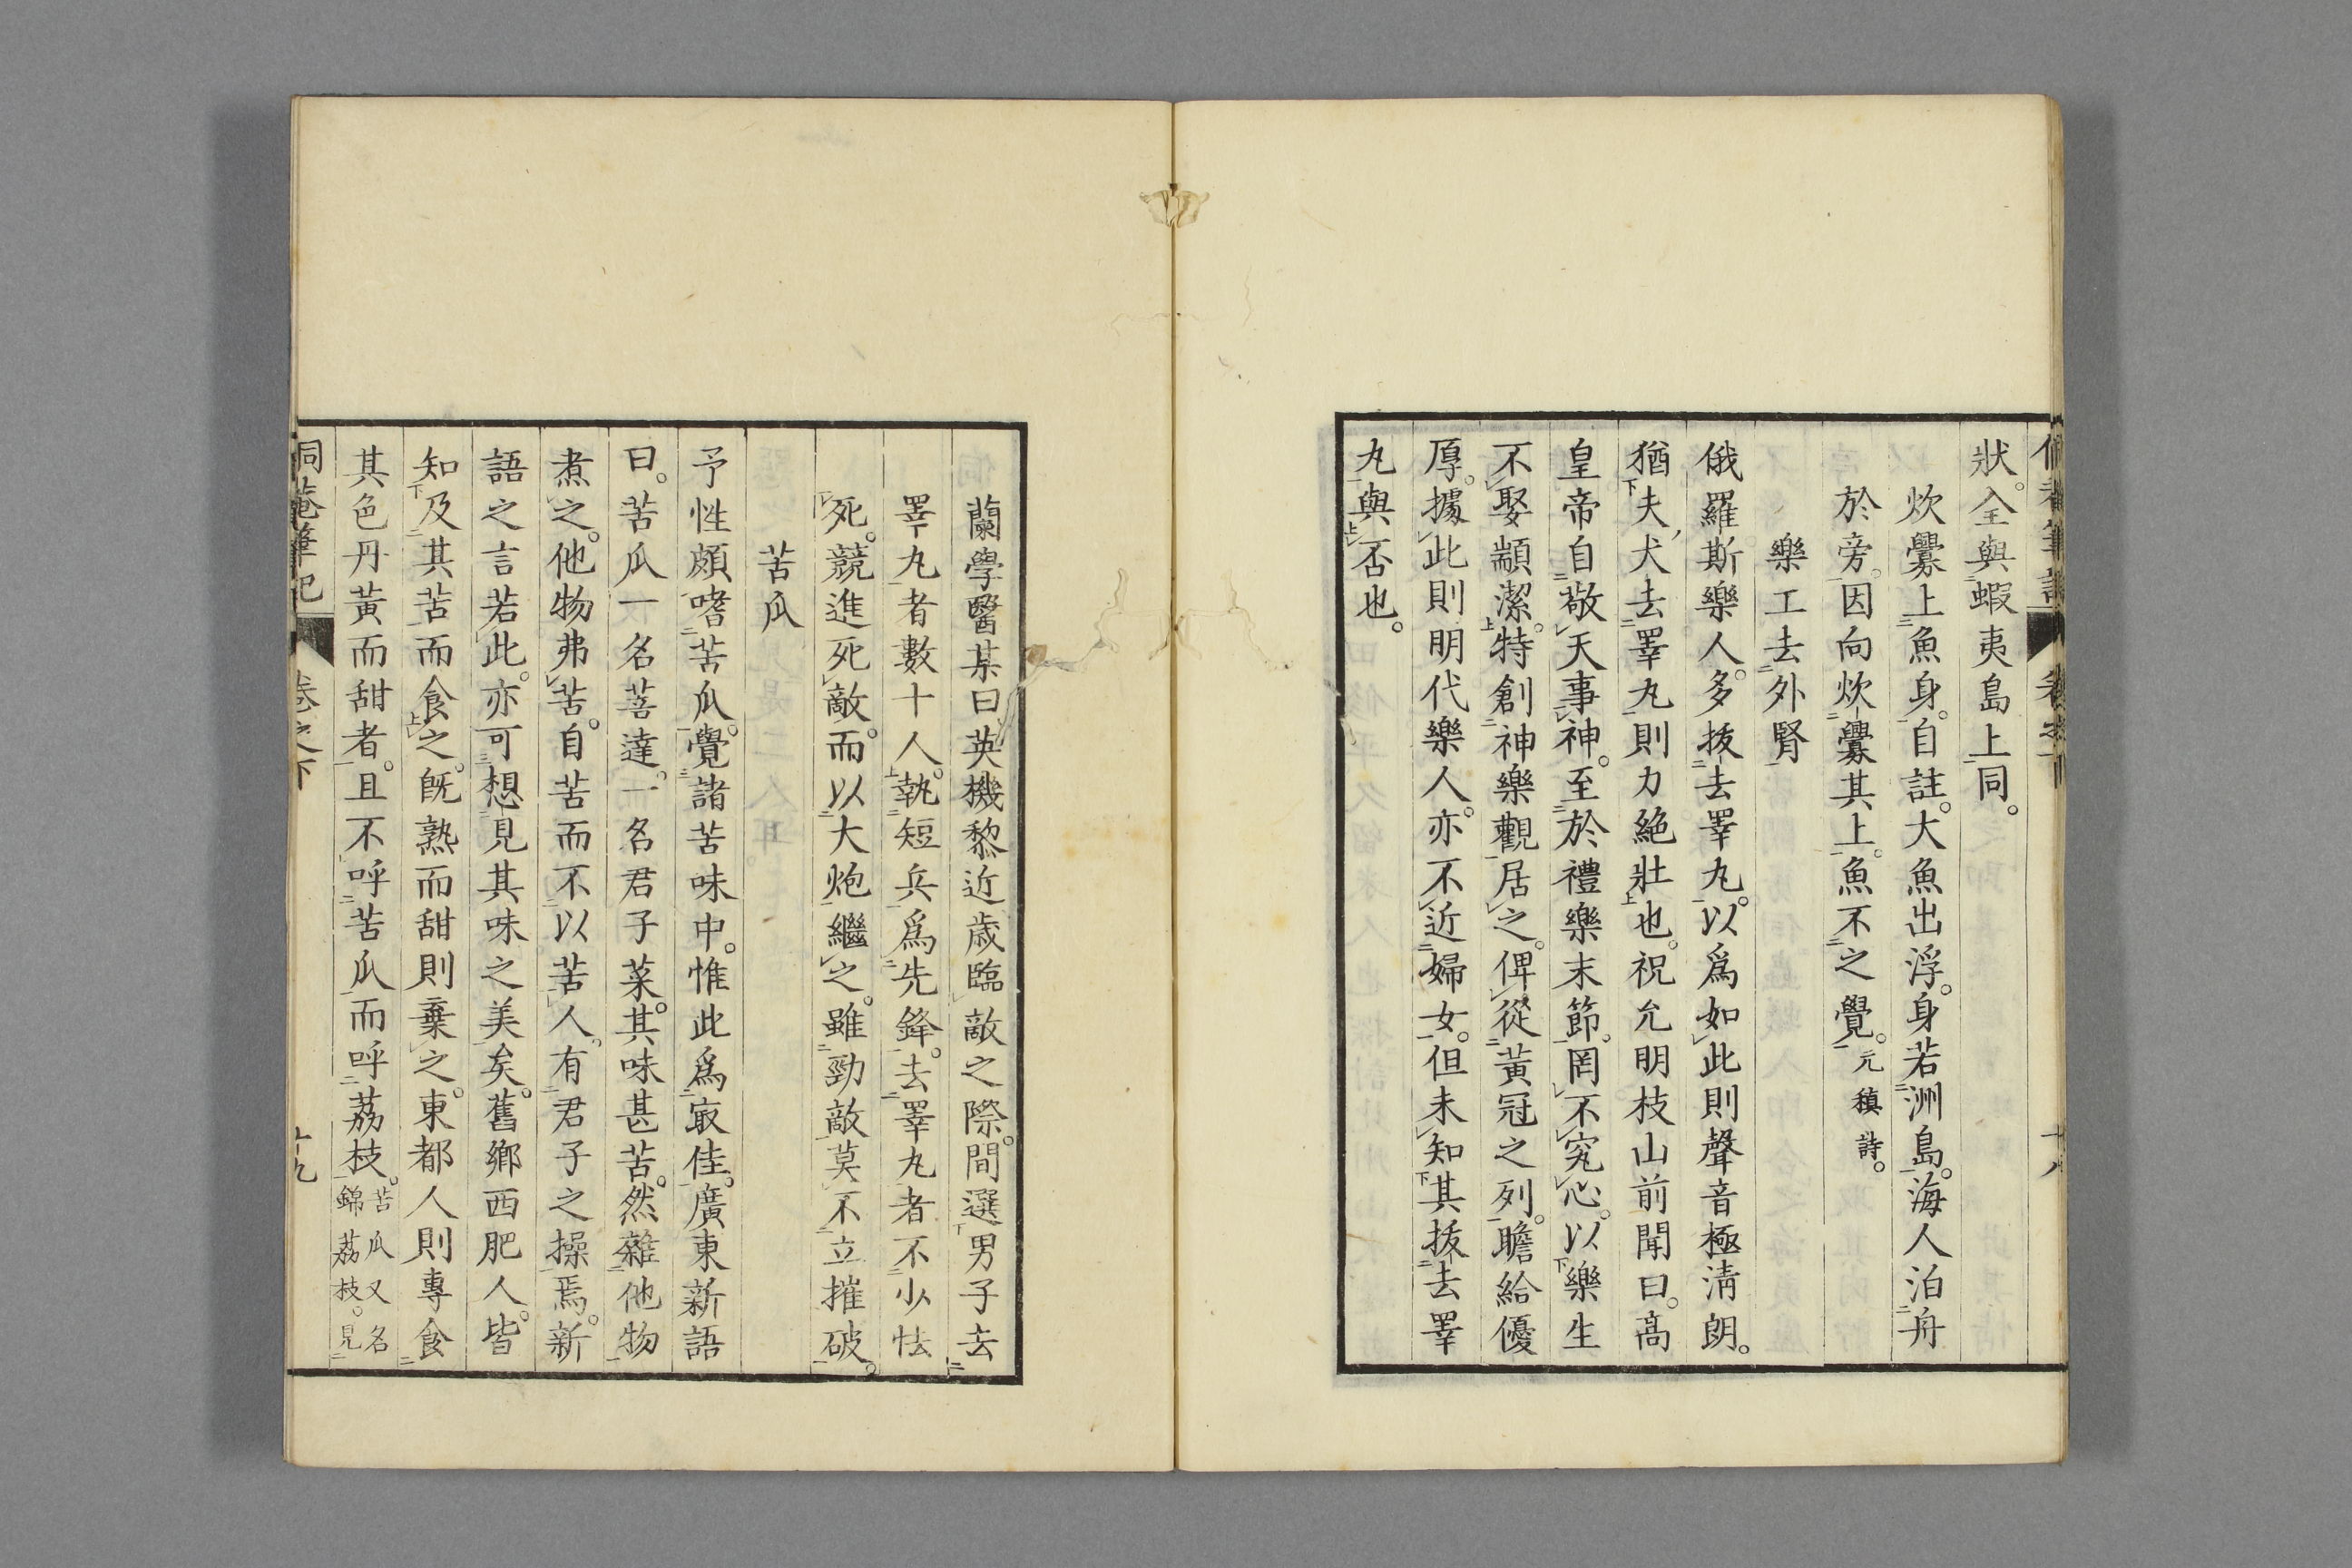 狀。全與蝦夷島上同。
炊爨上魚身。自註。大魚出浮。身若洲島。海人泊舟
於旁。因向炊爨其上。魚不之覺。元稹詩。
樂工去外腎
俄羅斯樂人。多拔去睪丸。以爲如此則聲音極淸朗。
猶夫犬去睪丸則力絶壯也。祝允明枝山前聞曰。高
皇帝自敬天事神。至於禮樂末節。罔不究心。以樂生
不娶顓潔。特創神樂觀居之。俾從黃冠之列。瞻給優
厚。據此則明代樂人。亦不近婦女。但未知其拔去睪
丸與否也。
蘭學醫某曰英機黎近歲臨敵之際。間選男子去
睪丸者數十人。執短兵爲先鋒。去睪丸者不少怯
死。競進死敵。而以大炮繼之。雖勁敵莫不立摧破。
苦瓜
予性頗嗜苦瓜。覺諸苦味中。惟此爲㝡佳。廣東新語
曰。苦瓜一名菩達。一名君子菜。其味甚苦。然雜他物
煮之。他物弗苦。自苦而不以苦人。有君子之操焉。新
語之言若此。亦可想見其味之美矣。舊鄉西肥人。皆
知及其苦而食之。旣熟而甜則棄之。東都人則專食
其色丹黃而甜者。且不呼苦瓜而呼荔枝。苦瓜又名
錦荔枝。見
侗菴筆記 卷之下 十九